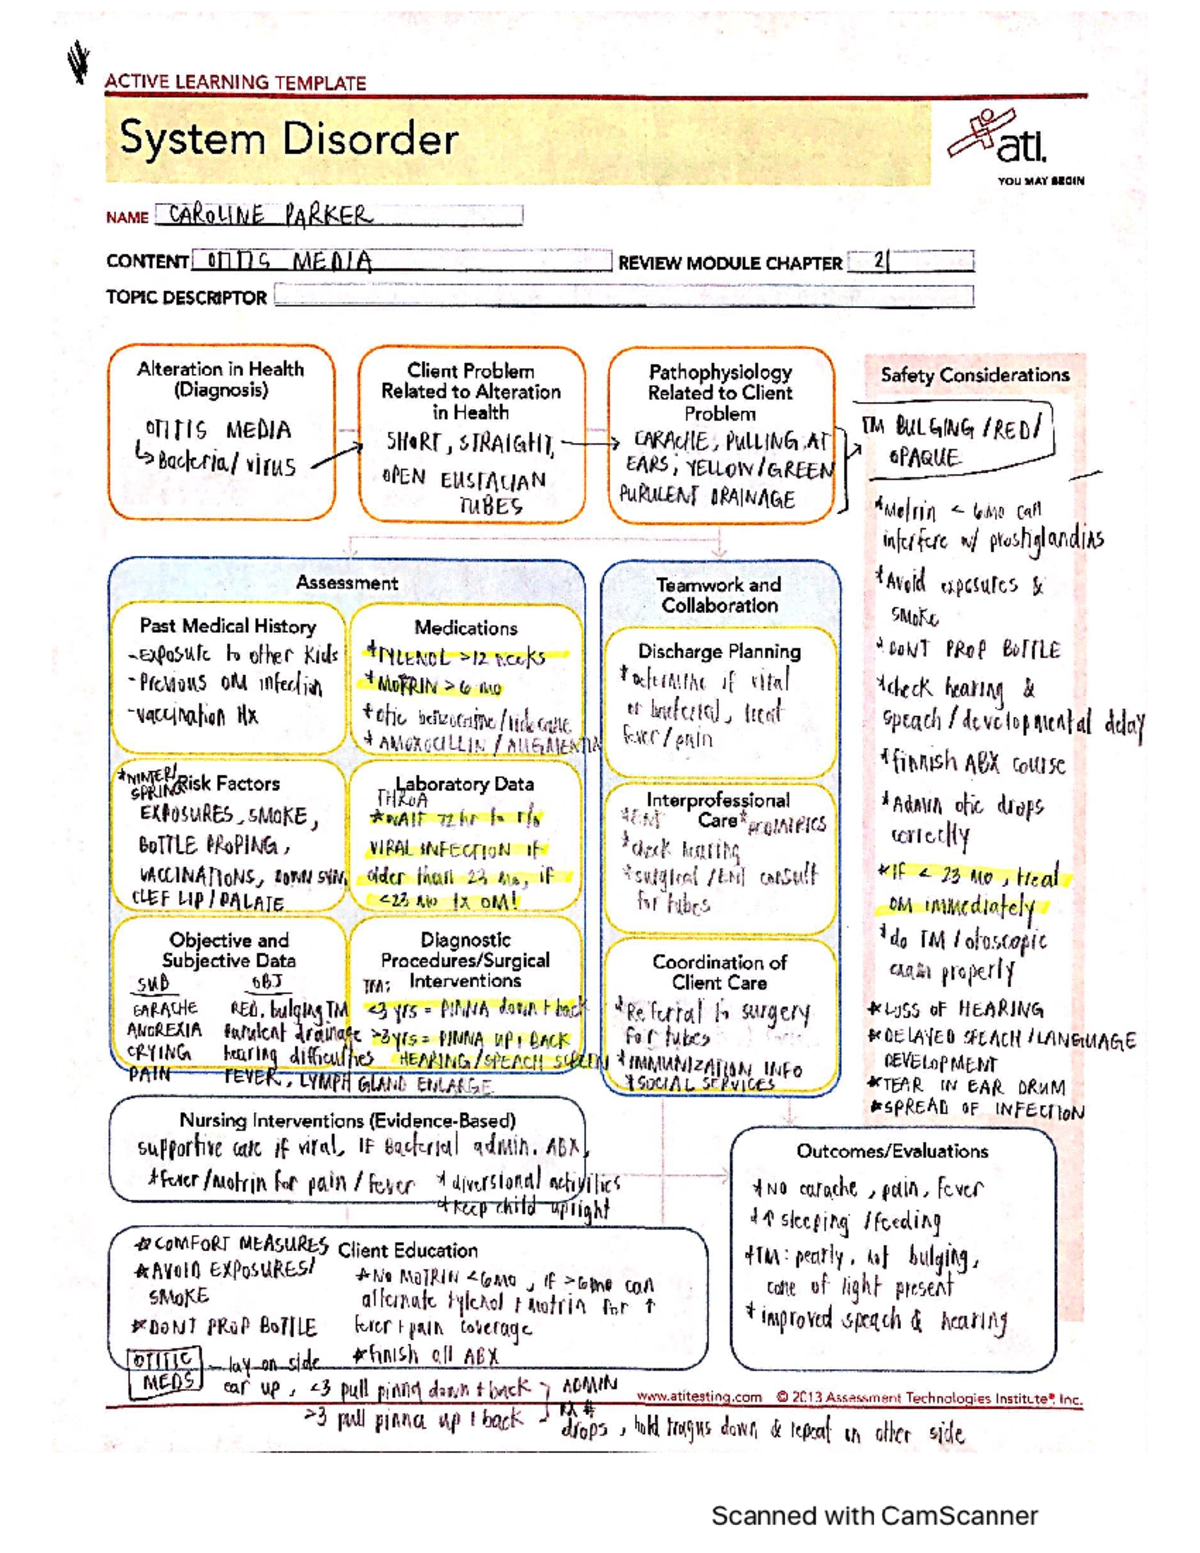 ACTIVE LEARNING TEMPLATE
System Disorder
ati.
YOU MAY BEGIN
NAME CAROLINE PARKER
CONTENT OTITIS MEDIA REVIEW MODULE CHAPTER 21
TOPIC DESCRIPTOR
Alteration in Health
(Diagnosis)
OTITIS MEDIA
↳Bacteria/virus
Client Problem
Related to Alteration
in Health
SHORT, STRAIGHT,
OPEN EUSTACIAN
TUBES
Pathophysiology
Related to Client
Problem
EARACHE, PULLING AT
EARS, YELLOW/GREEN
PURULENT DRAINAGE
Safety Considerations
TM BULGING/RED/
OPAQUE
*Motrin < 6mo can
interfere w/ prostiglandins
*Avoid exposures &
smoke
*DONT PROP BOTTLE
*check hearing &
speach/developmental delay
*finnish ABX course
*Admin otic drops
correctly
*IF < 23 mo, treat
OM immediately
*do TM/otoscopic
exam properly
*LOSS OF HEARING
*DELAYED SPEACH/LANGUAGE
DEVELOPMENT
*TEAR IN EAR DRUM
*SPREAD OF INFECTION
Assessment
Past Medical History
-Exposure to other kids
-Previous OM infection
-vaccination Hx
Medications
*TYLENOL >12 weeks
*MOTRIN > 6 mo
*otic benzocaine/lidocaine
*AMOXOCILLIN/AUGMENTIN
*WINTER/
SPRING
Risk Factors
EXPOSURES, SMOKE,
BOTTLE PROPING,
VACCINATIONS, DOWN SYN,
CLEF LIP/PALATE
Laboratory Data
*WAIT 72 hr to r/o
VIRAL INFECTION IF
older than 23 mo, if
<23 mo tx OM!
Objective and
Subjective Data
SUB OBJ
EARACHE RED, bulging TM
ANOREXIA Purulent drainage
CRYING hearing difficulties
PAIN FEVER, LYMPH GLAND ENLARGE
Diagnostic
Procedures/Surgical
Interventions
TM:
<3 yrs = PINNA down + back
>3 yrs = PINNA UP + BACK
HEARING/SPEACH SCREEN
Teamwork and
Collaboration
Discharge Planning
*determine if viral
or bacterial, treat
fever/pain
Interprofessional
Care
*ENT *PEDIATRICS
*check hearing
*surgical/ENT consult
for tubes
Coordination of
Client Care
*Referral to surgery
for tubes
*IMMUNIZATION INFO
*SOCIAL SERVICES
Nursing Interventions (Evidence-Based)
supportive care if viral, IF Bacterial admin. ABX,
*fever/motrin for pain/fever *diversional activities
*keep child upright
Outcomes/Evaluations
*NO earache, pain, fever
*↑ sleeping/feeding
*TM: pearly, not bulging,
cone of light present
*improved speach & hearing
Client Education
*COMFORT MEASURES
*AVOID EXPOSURES/
SMOKE
*DONT PROP BOTTLE
*NO MOTRIN <6mo, IF >6mo can
alternate tylenol + motrin for ↑
fever + pain coverage
*finish all ABX
OTITIC
MEDS
- lay on side
ear up, <3 pull pinna down + back
>3 pull pinna up + back
ADMIN
RX #
drops, hold tragus down & repeat on other side
www.atitesting.com © 2013 Assessment Technologies Institute®, Inc.
Scanned with CamScanner